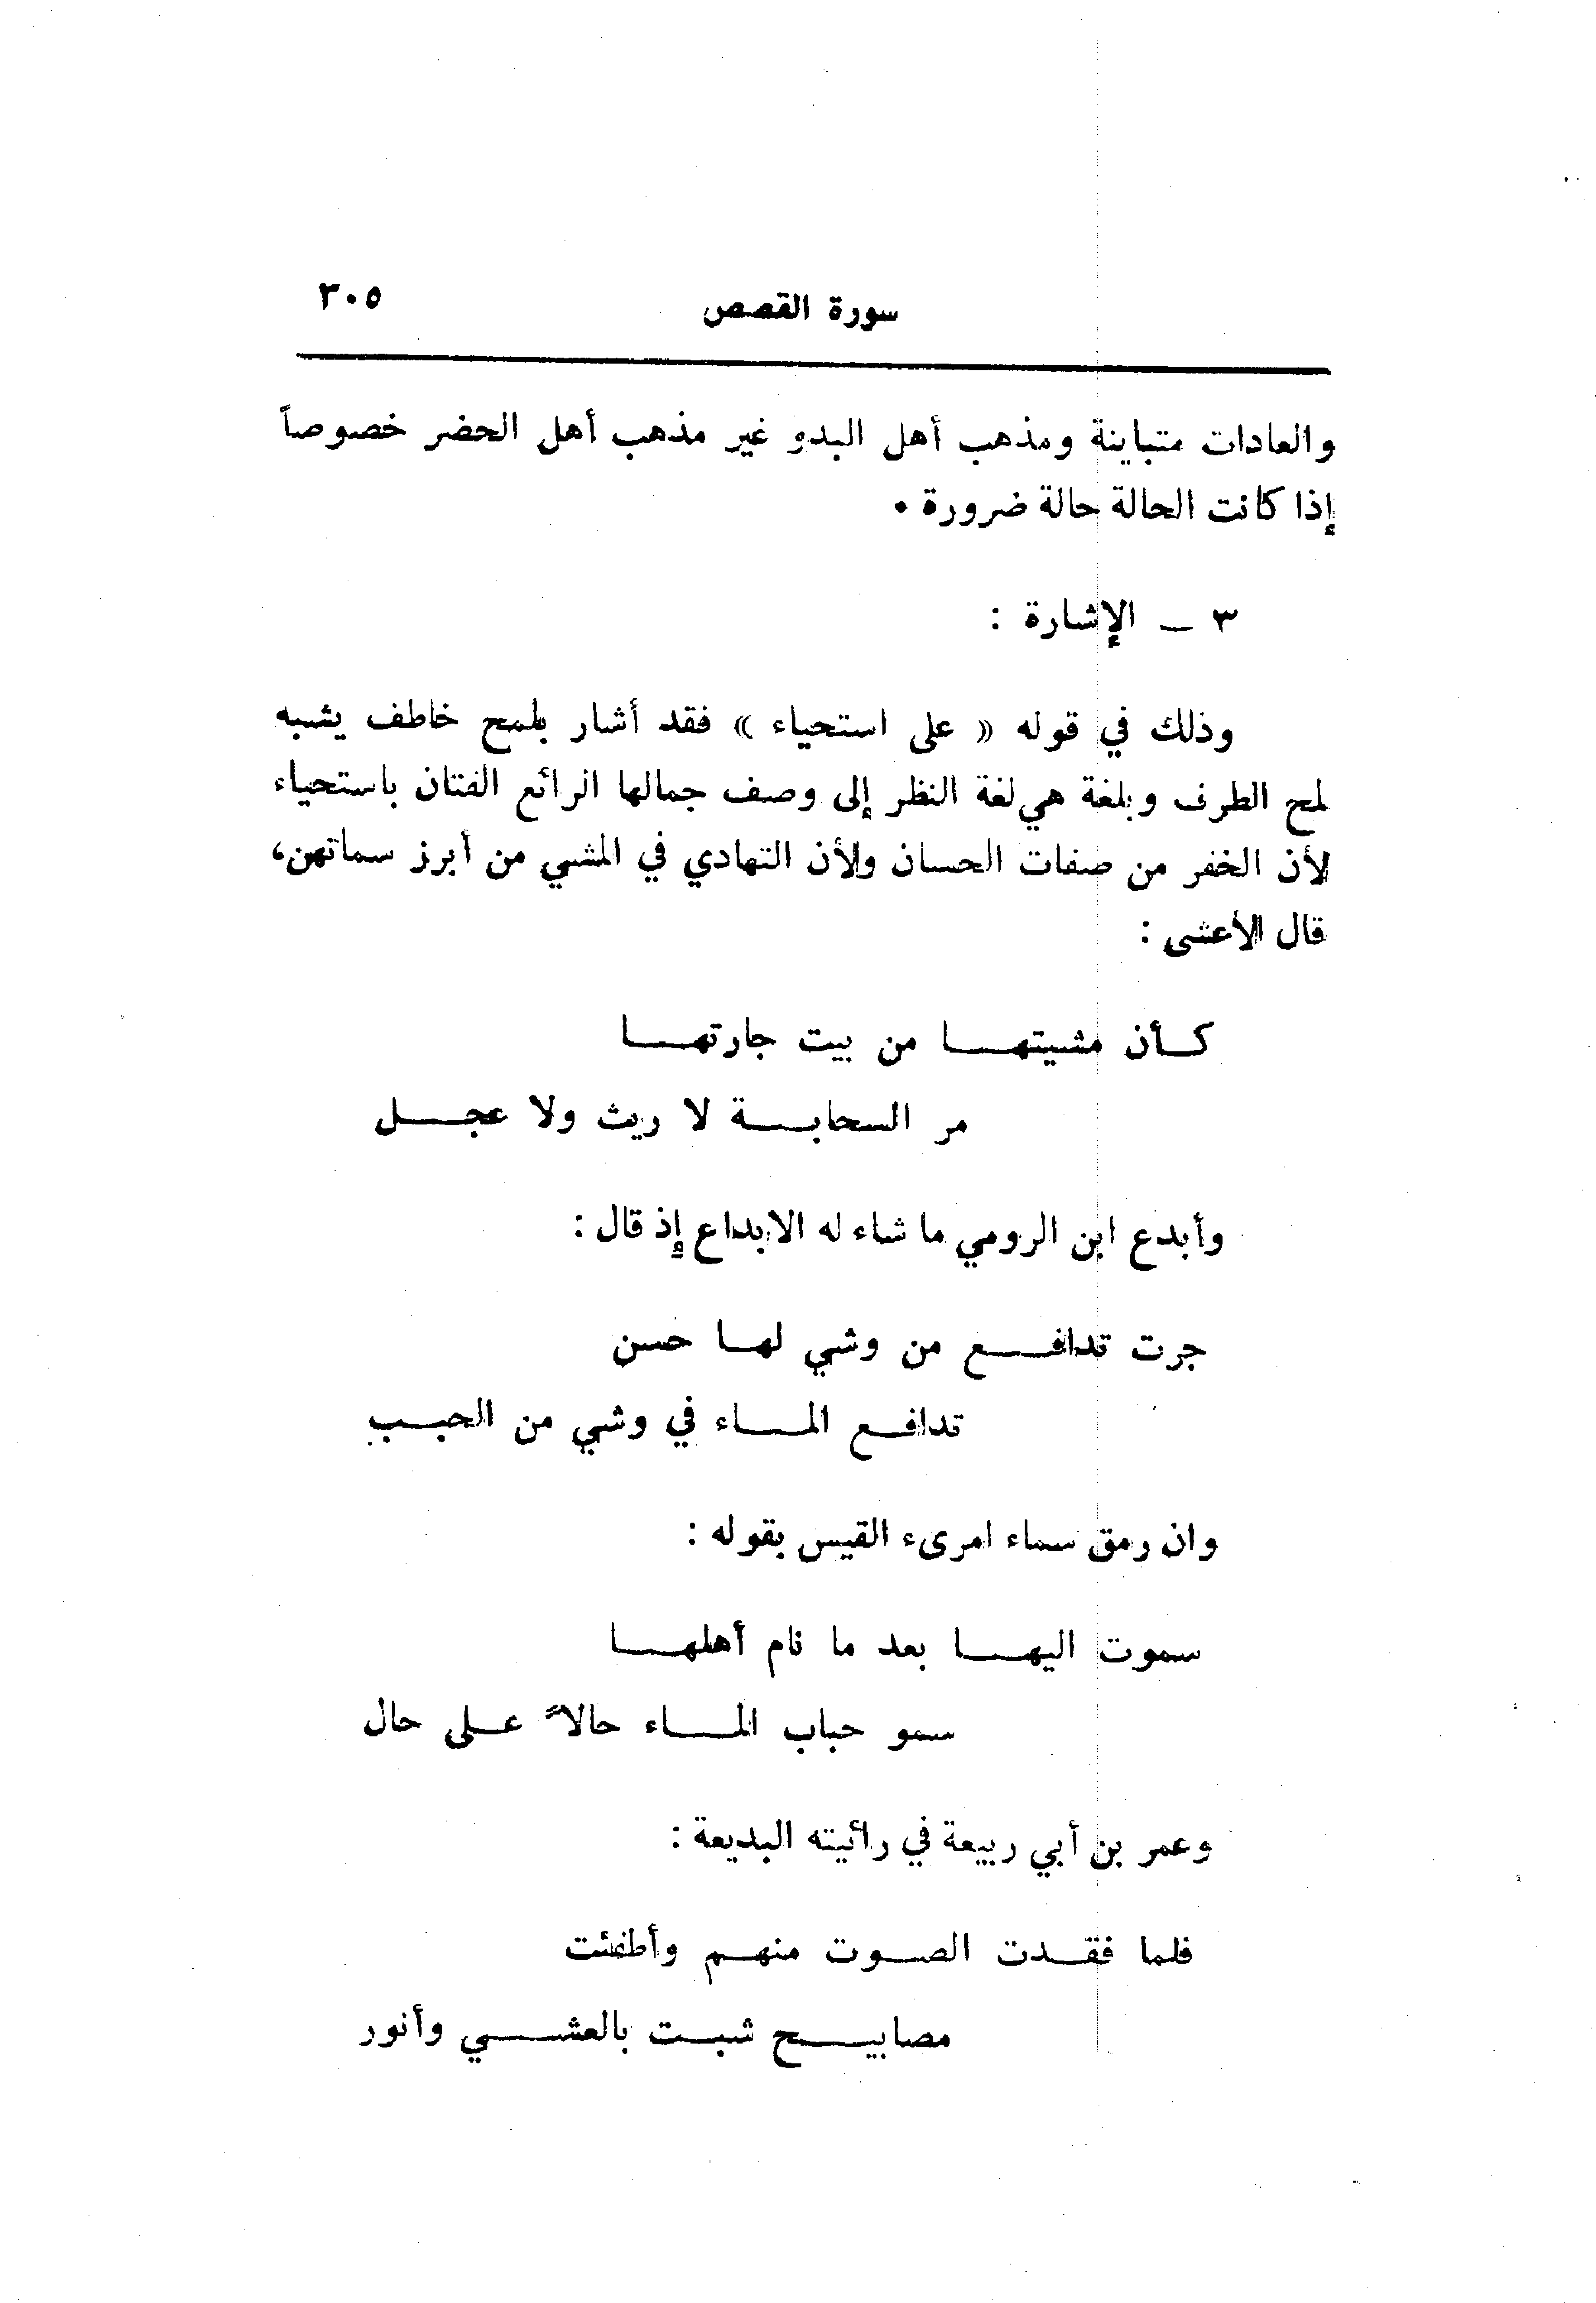 سورة القصص ٣٠٥
والعادات متباينة ومذهب أهل البدو غير مذهب أهل الحضر خصوصاً
إذا كانت الحالة حالة ضرورة •
٣ ــ الإشارة :
وذلك في قوله « على استحياء » فقد أشار بلمح خاطف يشبه
لمح الطرف وبلغة هي لغة النظر إلى وصف جمالها الرائع الفتان باستحياء
لأن الخفر من صفات الحسان ولأن التهادي في المشي من أبرز سماتهن،
قال الأعشى :
كأن مشيتها من بيت جارتها
مر السحابة لا ريث ولا عجل
وأبدع ابن الرومي ما شاء له الابداع إذ قال :
جرت تدافع من وشي لها حسن
تدافع الماء في وشي من الحبب
وان رمق سماء امرىء القيس بقوله :
سموت اليها بعد ما نام أهلها
سمو حباب الماء حالاً على حال
وعمر بن أبي ربيعة في رائيته البديعة :
فلما فقدت الصوت منهم وأطفئت
مصابيح شبت بالعشي وأنور